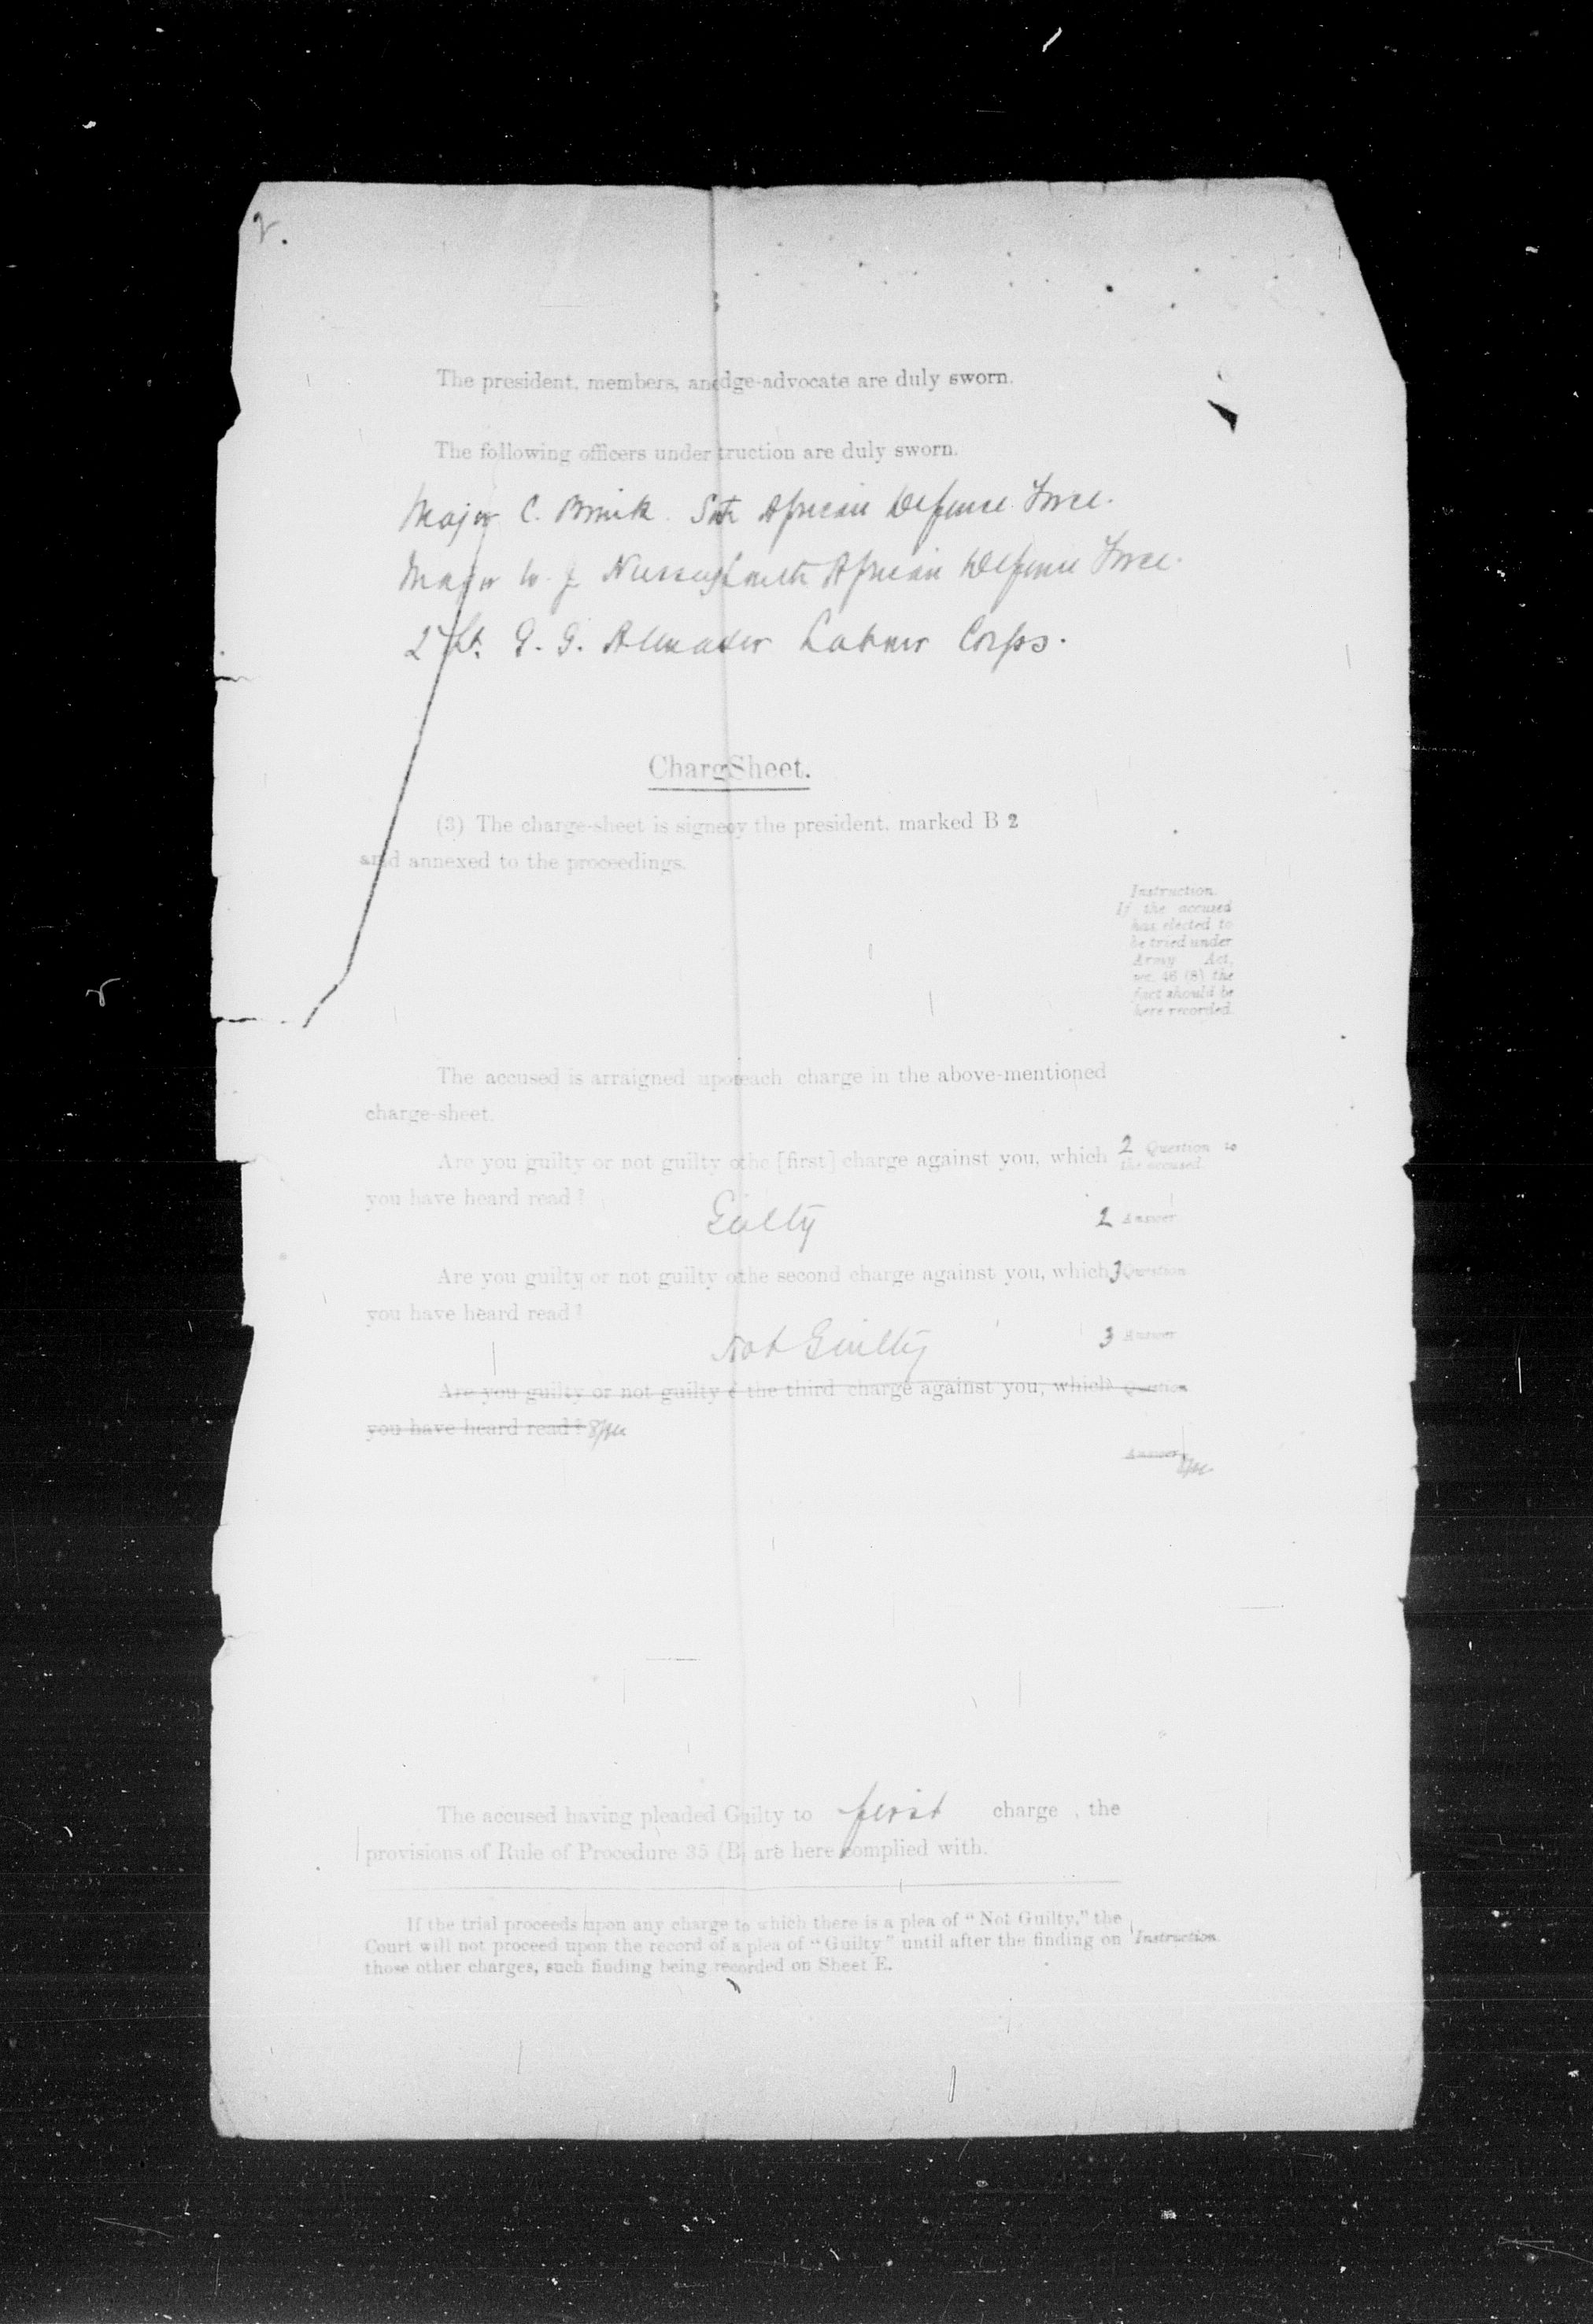 2.
The president, members, an dge-advocate are duly sworn.
The following officers under truction are duly sworn.
Major C. Brink. Sth African Defence Force.
Major W. J. South African Defence Force.
2/Lt. G. G. Labour Corps.
Charg Sheet.
(3) The charge-sheet is signe y the president, marked B 2
and annexed to the proceedings.
Instruction.
If the accused
has elected to
be tried under
Army Act,
sec. 46 (8) the
fact should be
here recorded.
The accused is arraigned upo each charge in the above-mentioned
charge-sheet.
Are you guilty or not guilty o the [first] charge against you, which 2 Question to
the accused.
you have heard read?
Guilty 2 Answer
Are you guilty or not guilty o the second charge against you, which 3 Question
you have heard read?
Not Guilty 3 Answer
Are you guilty or not guilty f the third charge against you, which Question
you have heard read?
Answer
The accused having pleaded Guilty to first charge , the
provisions of Rule of Procedure 35 (B) are here complied with.
If the trial proceeds upon any charge to which there is a plea of "Not Guilty," the
Court will not proceed upon the record of a plea of "Guilty" until after the finding on Instruction.
those other charges, such finding being recorded on Sheet E.